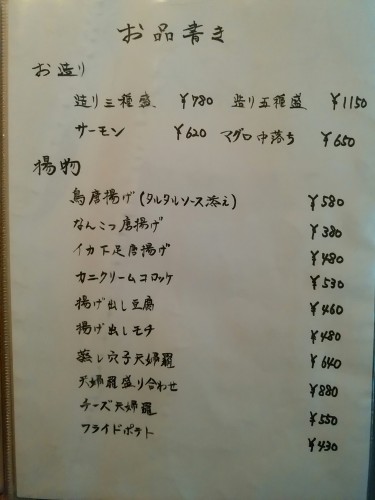 お品書き
お造り
造り三種盛 ¥780 造り五種盛 ¥1150
サーモン ¥620 マグロ中落ち ¥650
揚物
鳥唐揚げ(タルタルソース添え) ¥580
なんこつ唐揚げ ¥380
イカ下足唐揚げ ¥480
カニクリームコロッケ ¥530
揚げ出し豆腐 ¥460
揚げ出しモチ ¥480
蒸し穴子天婦羅 ¥640
天婦羅盛り合わせ ¥880
チーズ天婦羅 ¥550
フライドポテト ¥430